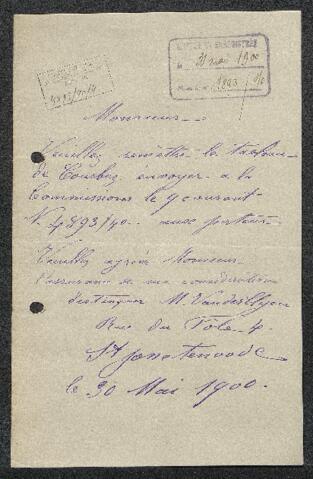 31 mai 1900
4893/40
Monsieur
Veuillez remettre le tableau
de Courbez envoyer a la
Commissions le 9 courant
N. 4893/40 aux porteur
Veuillez agréer Monsieur
l'assurance de ma considération
distinguer M.
Rue du Pôle 4.
St Josse tenoode
le 30 Mai 1900.